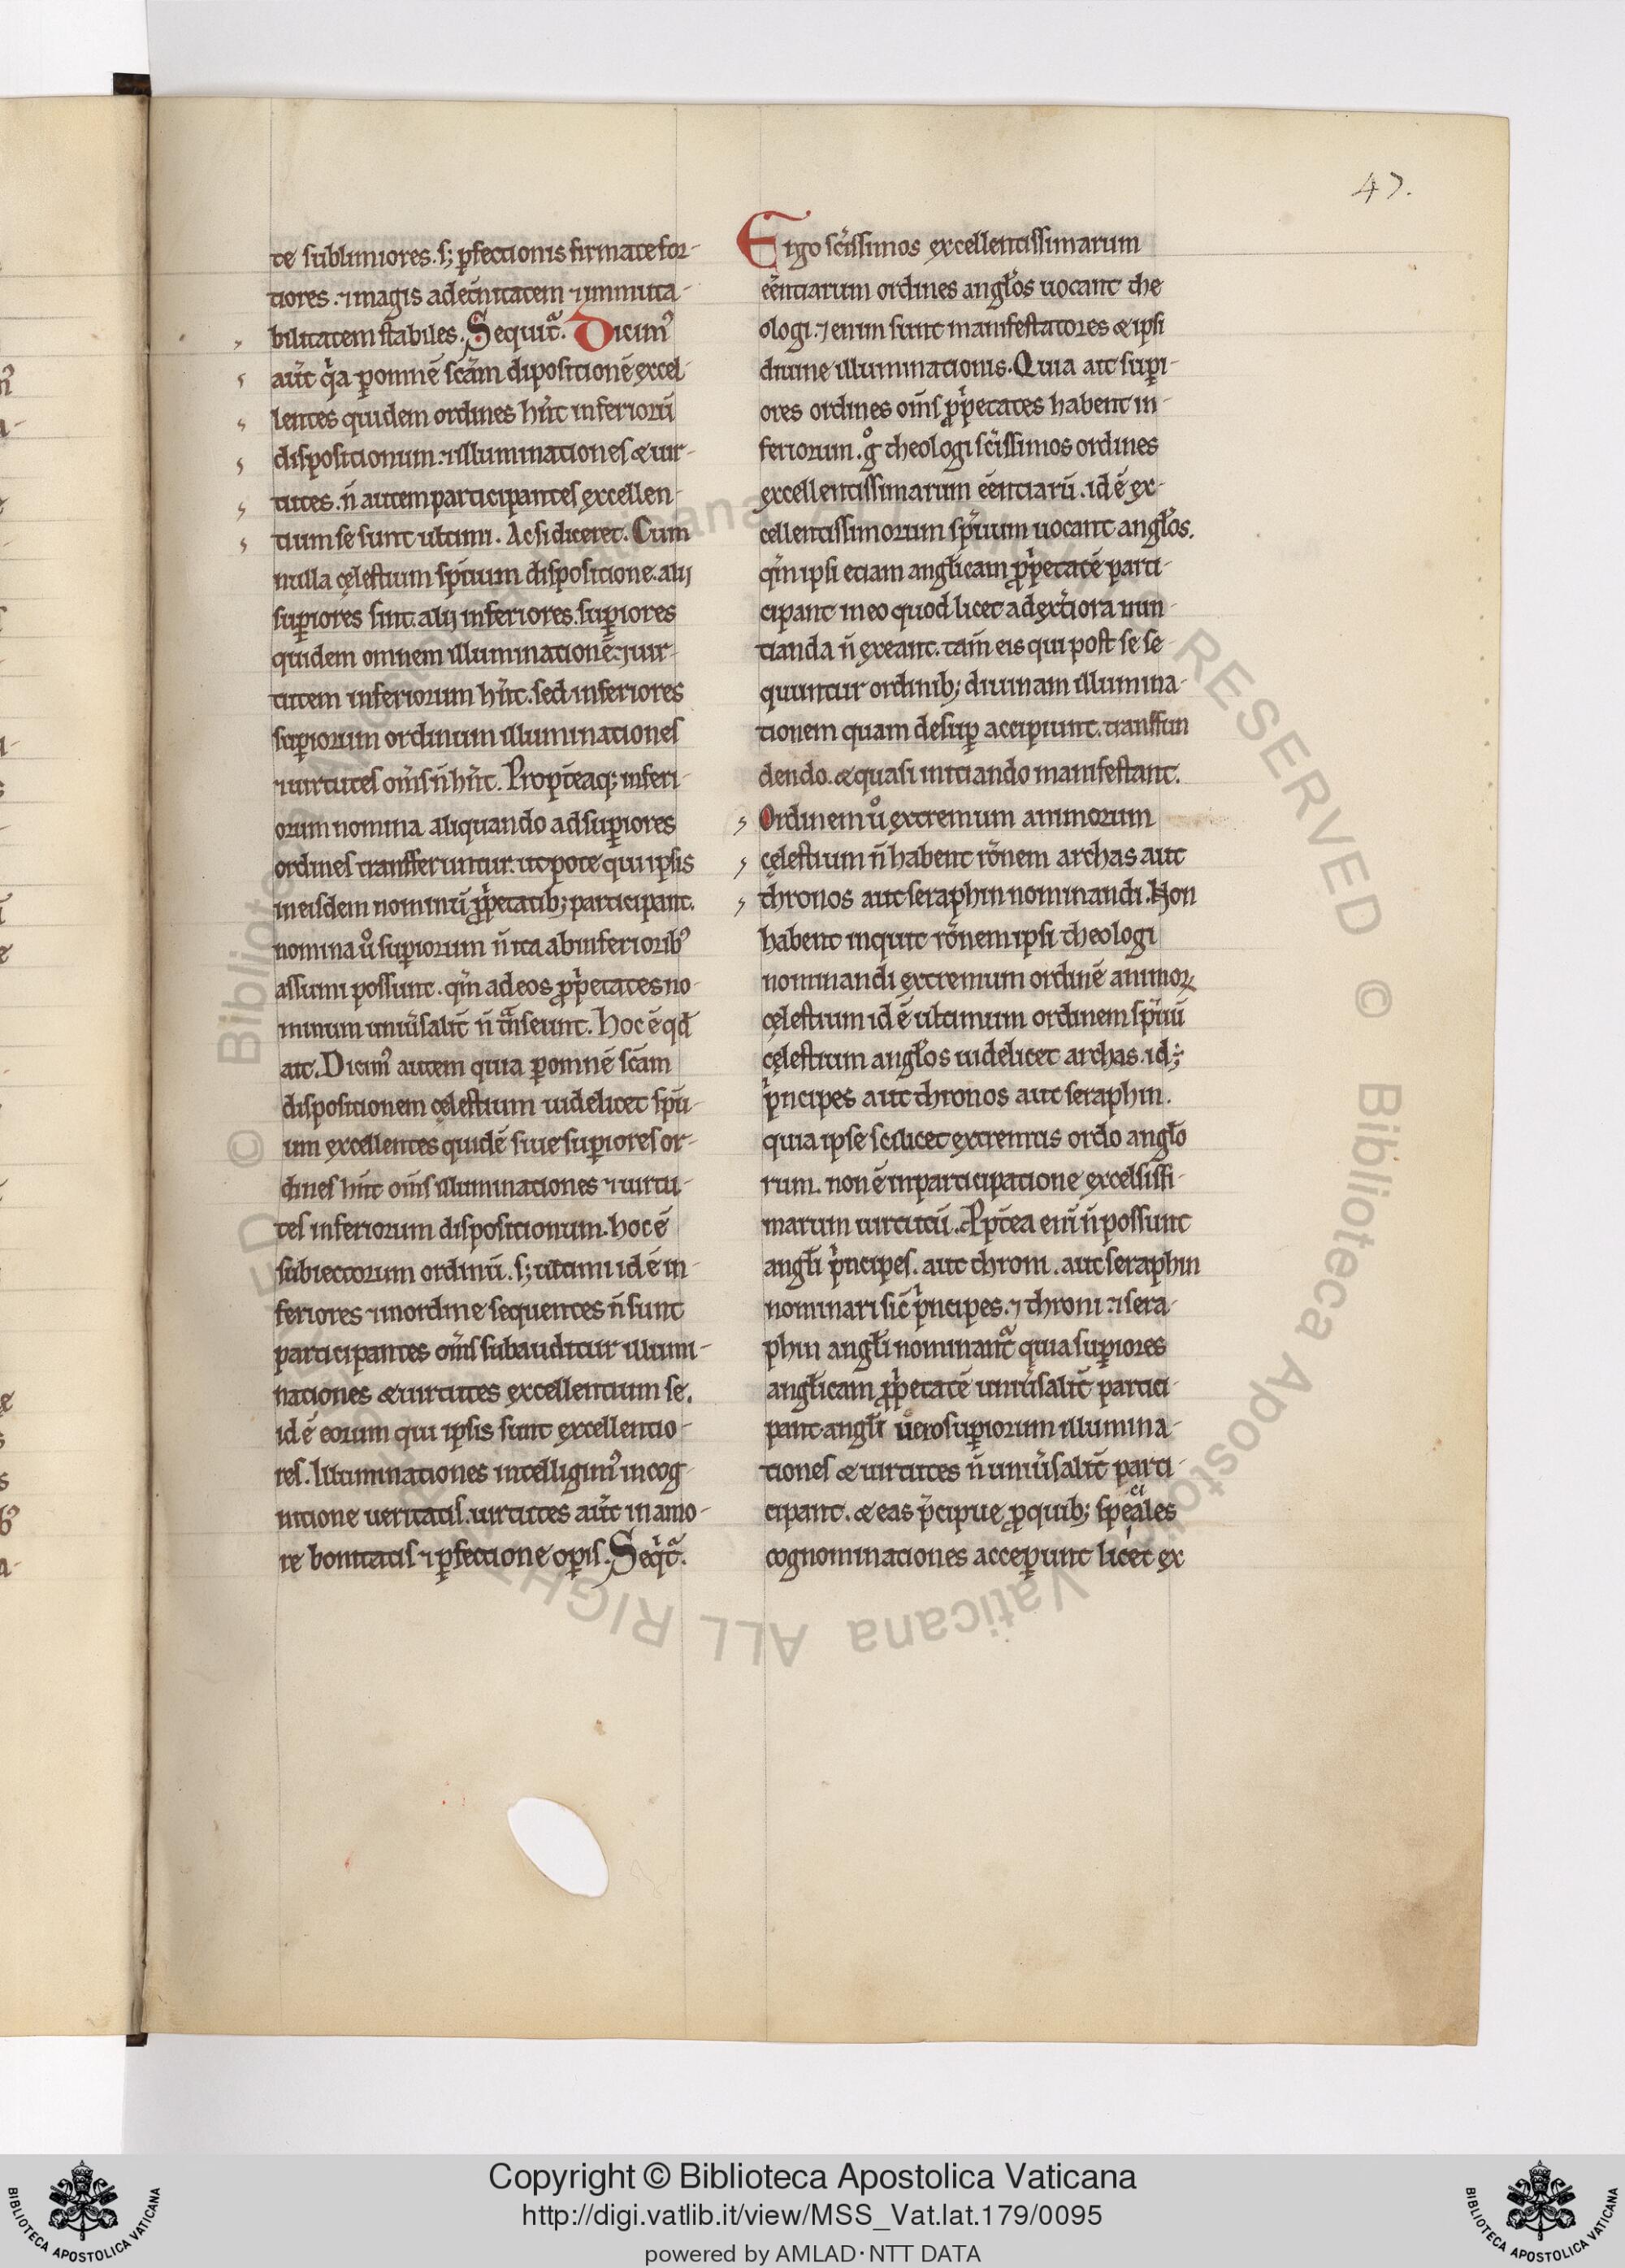 47.
te sublimiores. s; ꝑfectionis firmate for-
tiores. ⁊ magis ad et̃nitatem ⁊ immuta-
bilitatem stabiles. Sequit᷑. Dicim᷒
aut̃ qͥa ꝑ omnẽ sc̃am dipositionẽ excel-
lentes quidem ordines hñt inferiorũ
dispositionum. ⁊ illuminationes & uir-
tutes. ñ autem participantes excellen-
tium se sunt ultimi. Ac si diceret. Cum
nulla cęlestium sp̃tium dispositione. alij
suꝑiores sint. alij inferiores. suꝑiores
quidem omnem illuminationẽ. ⁊ uir-
tutem inferiorum hñt. sed inferiores
suꝑiorum ordinum illuminationes
⁊ uirtutes om̃s ñ hñt. Propt̃eaq; inferi-
orum nomina aliquando ad suꝑiores
ordines transferuntur. utpote qui ipsis
in eisdem nominũ ꝓpͥetatib; participant.
nomina uͦ suꝑiorum ñ ita ab inferiorib᷒
assumi possunt. qm̃ ad eos ꝓpͥetates no-
minum uniũsalit̃ ñ tñseunt. Hoc ẽ qd̃
ait. Dicim᷒ autem quia ꝑ omnẽ sc̃am
dispositionem cęlestium uidelicet spũ-
um excellentes quidẽ siue suꝑiores or-
dines hñt om̃s illuminationes ⁊ uirtu-
tes inferiorum dispositionum. hoc ẽ
subiectorum ordinũ. s; ultimi id ẽ in-
feriores ⁊ in ordine sequentes ñ sunt
participantes om̃s subauditur illumi-
nationes & uirtutes excellentium se.
id ẽ eorum qui ipsis sunt excellentio-
res. Illuminationes intelligim᷒ in cog-
nitione ueritatis. uirtutes aut̃ in amo-
re bonitatis ⁊ ꝑfectione oꝑis. Seqͥt᷑.
Ergo sc̃issimos excellentissimarum
eẽntiarum ordines angl̃os uocant the
ologi. ⁊ enim sunt manifestatores & ipsi
diuine illuminationis. Quia ait suꝑi-
ores ordines om̃s ꝓpͥetates habent in-
feriorum. gͦ theologi sc̃issimos ordines
excellentissimarum eẽntiarũ. id ẽ ex-
cellentissimorum sp̃ituum uocant angl̃os.
qm̃ ipsi etiam angl̃icam ꝓpͥetatẽ parti-
cipant in eo quod licet ad ext̃iora nun-
tianda ñ exeant. tam̃ eis qui post se se-
quuntur ordinib; diuinam illumina-
tionem quam desuꝑ accipiunt. transfun
dendo. & quasi initiando manifestant.
Ordinem uͦ extremum animorum
cęlestium ñ habent rõnem archas aut
thronos aut seraphin nominandi. Non
habent inquit rõnem ipsi theologi
nominandi extremum ordinẽ animoꝝ
cęlestium id ẽ ultimum ordinem sp̃iũũ
cęlestium angl̃os uidelicet archas. id÷
pͥncipes aut thronos aut seraphin.
quia ipse scilicet extremus ordo angl̃o
rum. non ẽ in participatione excelsissi-
marum uirtutũ. Ꝓpt̃ea eni᷑ ñ possunt
angl̃i pͥncipes. aut throni. aut seraphin
nominari sic̃ pͥncipes. ⁊ throni ⁊ sera-
phin angl̃i nominant᷑ quia suꝑiores
angl̃icam ꝓpͥetatẽ uniũsalit̃ partici-
pant. angl̃i uero suꝑiorum illumina-
tiones & uirtutes ñ uniũsalit̃ parti-
cipant. & eas p̃cipue ꝓ quib; speciales
cognominationes acceꝑunt licet ex
Copyright © Biblioteca Apostolica Vaticana
http://digi.vatlib.it/view/MSS_Vat.lat.179/0095
powered by AMLAD·NTT DATA
BIBLIOTECA APOSTOLICA VATICANA
BIBLIOTECA APOSTOLICA VATICANA